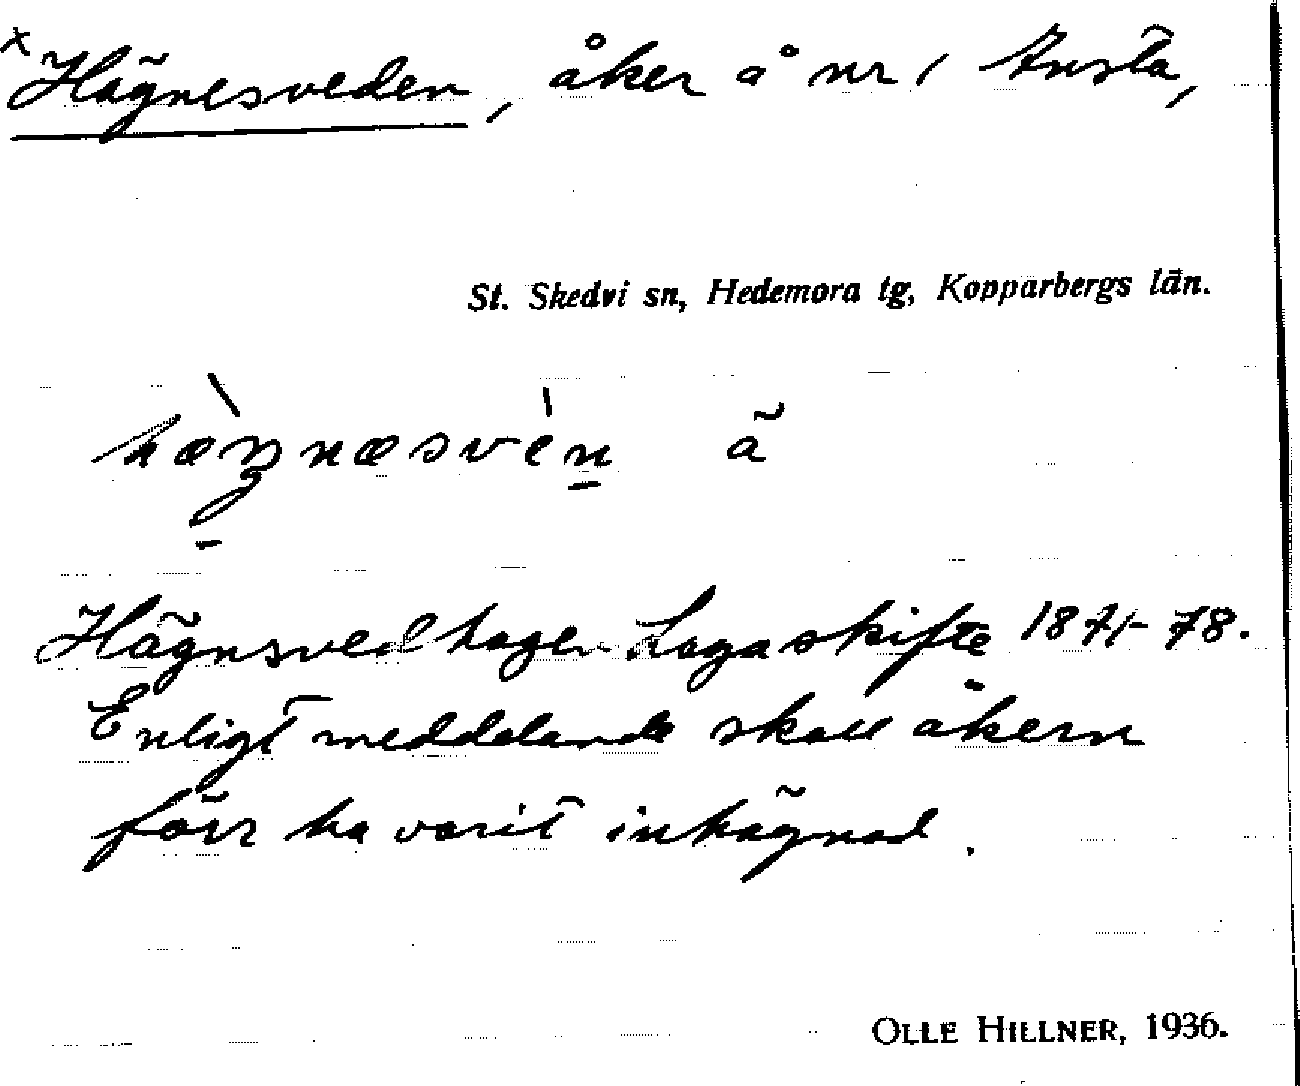 x Hägnesveden, åker å nr 1 Ansta,
St. Skedvi sn, Hedemora tg, Kopparbergs län.
ã
Hägnsvedhagen Laga skifte 1871-78.
Enligt meddelande skall åkern
förr ha varit inhägnad.
OLLE HILLNER, 1936.